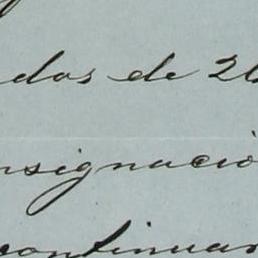 dos de 26
nsignació
continuar